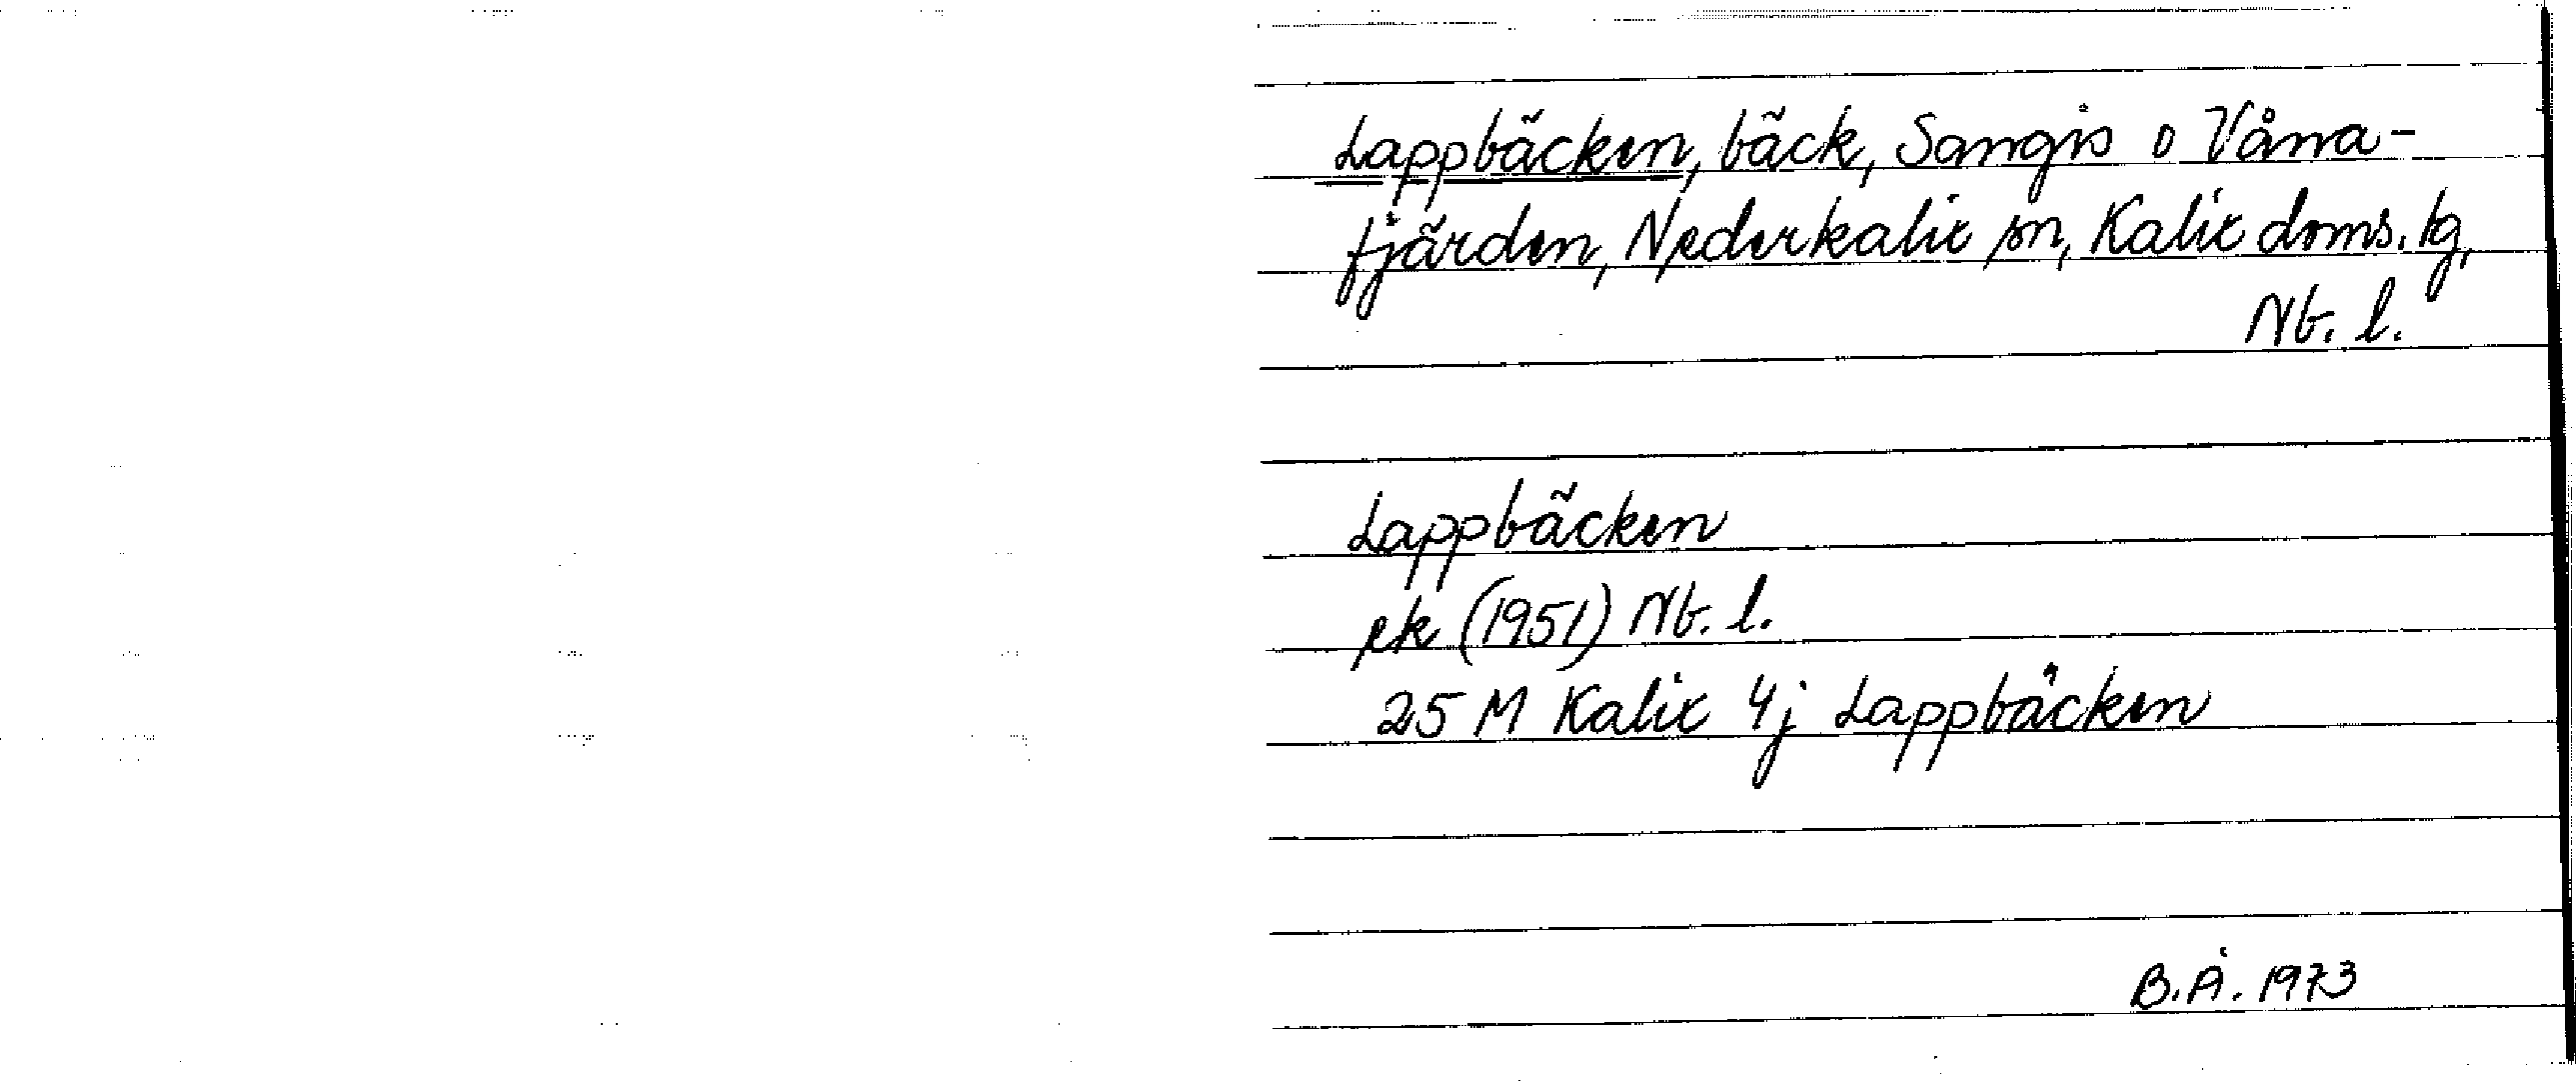 Lappbäcken, bäck, Sangis o Våna-
fjärden, Nederkalix sn, Kalix doms. lg,
Nb. l.
Lappbäcken
ek (1951) Nb. l.
25 M Kalix 4j Lappbäcken
B.Å. 1973